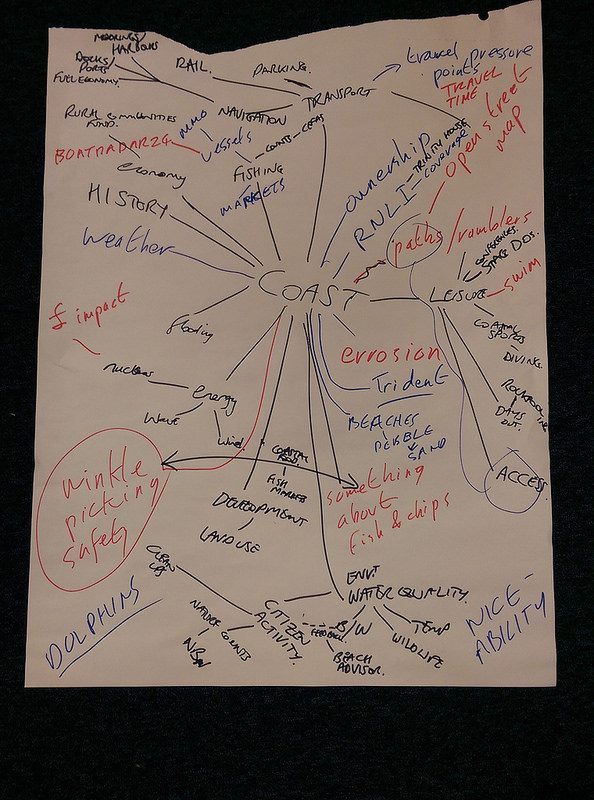 MOORINGS/
HARBOURS
DOCKS/
PORTS
FUEL ECONOMY.
RAIL.
PARKING.
TRANSPORT
travel pressure
points
TRAVEL
TIME
NAVIGATION
RURAL COMMUNITIES
FUND.
MMO
vessels
COUNTS
CEFAS
BOATRADARZ
economy
FISHING
MARKETS
HISTORY
weather
ownership
RNLI
TRINITY HOUSE
coverage
open street
map
paths/ramblers
CONFERENCES.
SPACE DES.
LEISURE
swim
COASTAL
SPORTS
DIVING
ROCKPOOL
DAYS
OUT.
ACCESS.
COAST
£ impact
flooding
nuclear
energy
wave
wind
errosion
Trident
BEACHES
PEBBLE
& SAND
winkle
picking
safety
COASTAL
FOOD.
FISH
MARKETS
DEVELOPMENT
LAND USE
something
about
fish & chips
CLEAN
UPS
CITIZEN
ACTIVITY.
NATURE
COUNTS
NBN
FEEDBACK.
ENVT
WATER QUALITY.
B/W
BEACH
ADVISOR.
WILDLIFE
TEMP
DOLPHINS
NICE-
ABILITY